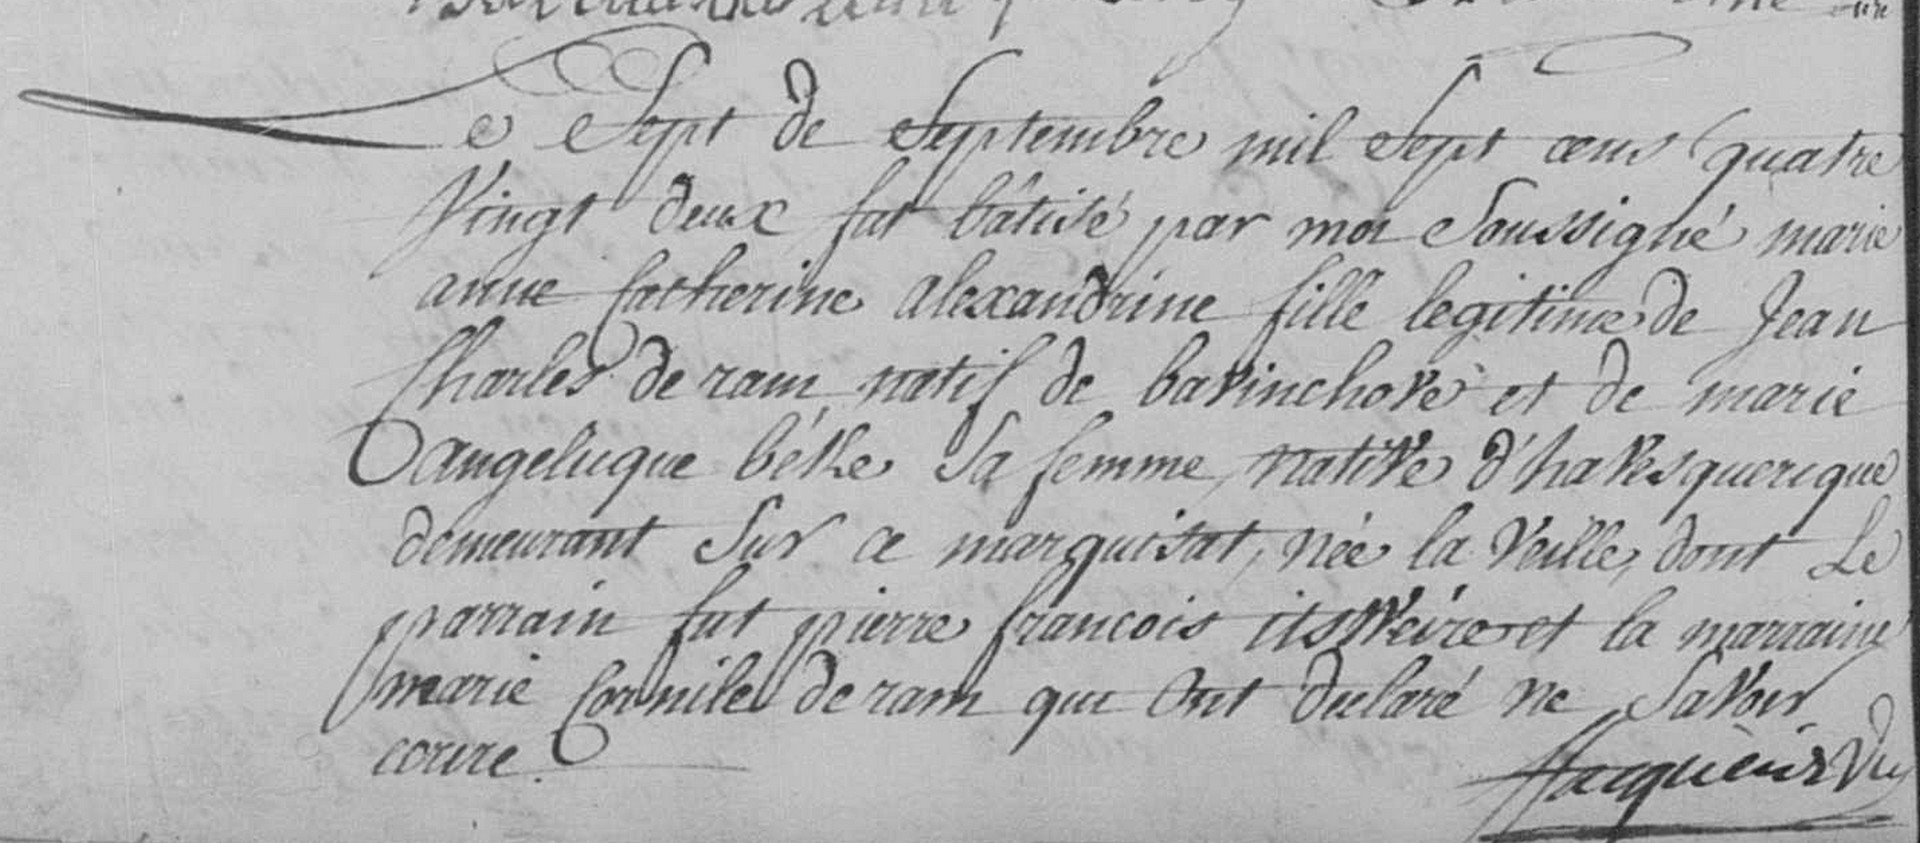 Le Sept de Septembre mil Sept cens quatre
Vingt deux fut bâtisé par moi Soussigné marie
anne Catherine alexandrine fille legitime de Jean
Charles de ram natif de bavinchove et de marie
Angelique béke Sa femme, native d'havesquerque
demeurant Sur ce marquisat, née la Veille, dont Le
parrain fut pierre francois itsweire et la marraine
marie Cornile de ram qui Ont declaré ne Savoir
ecrire.